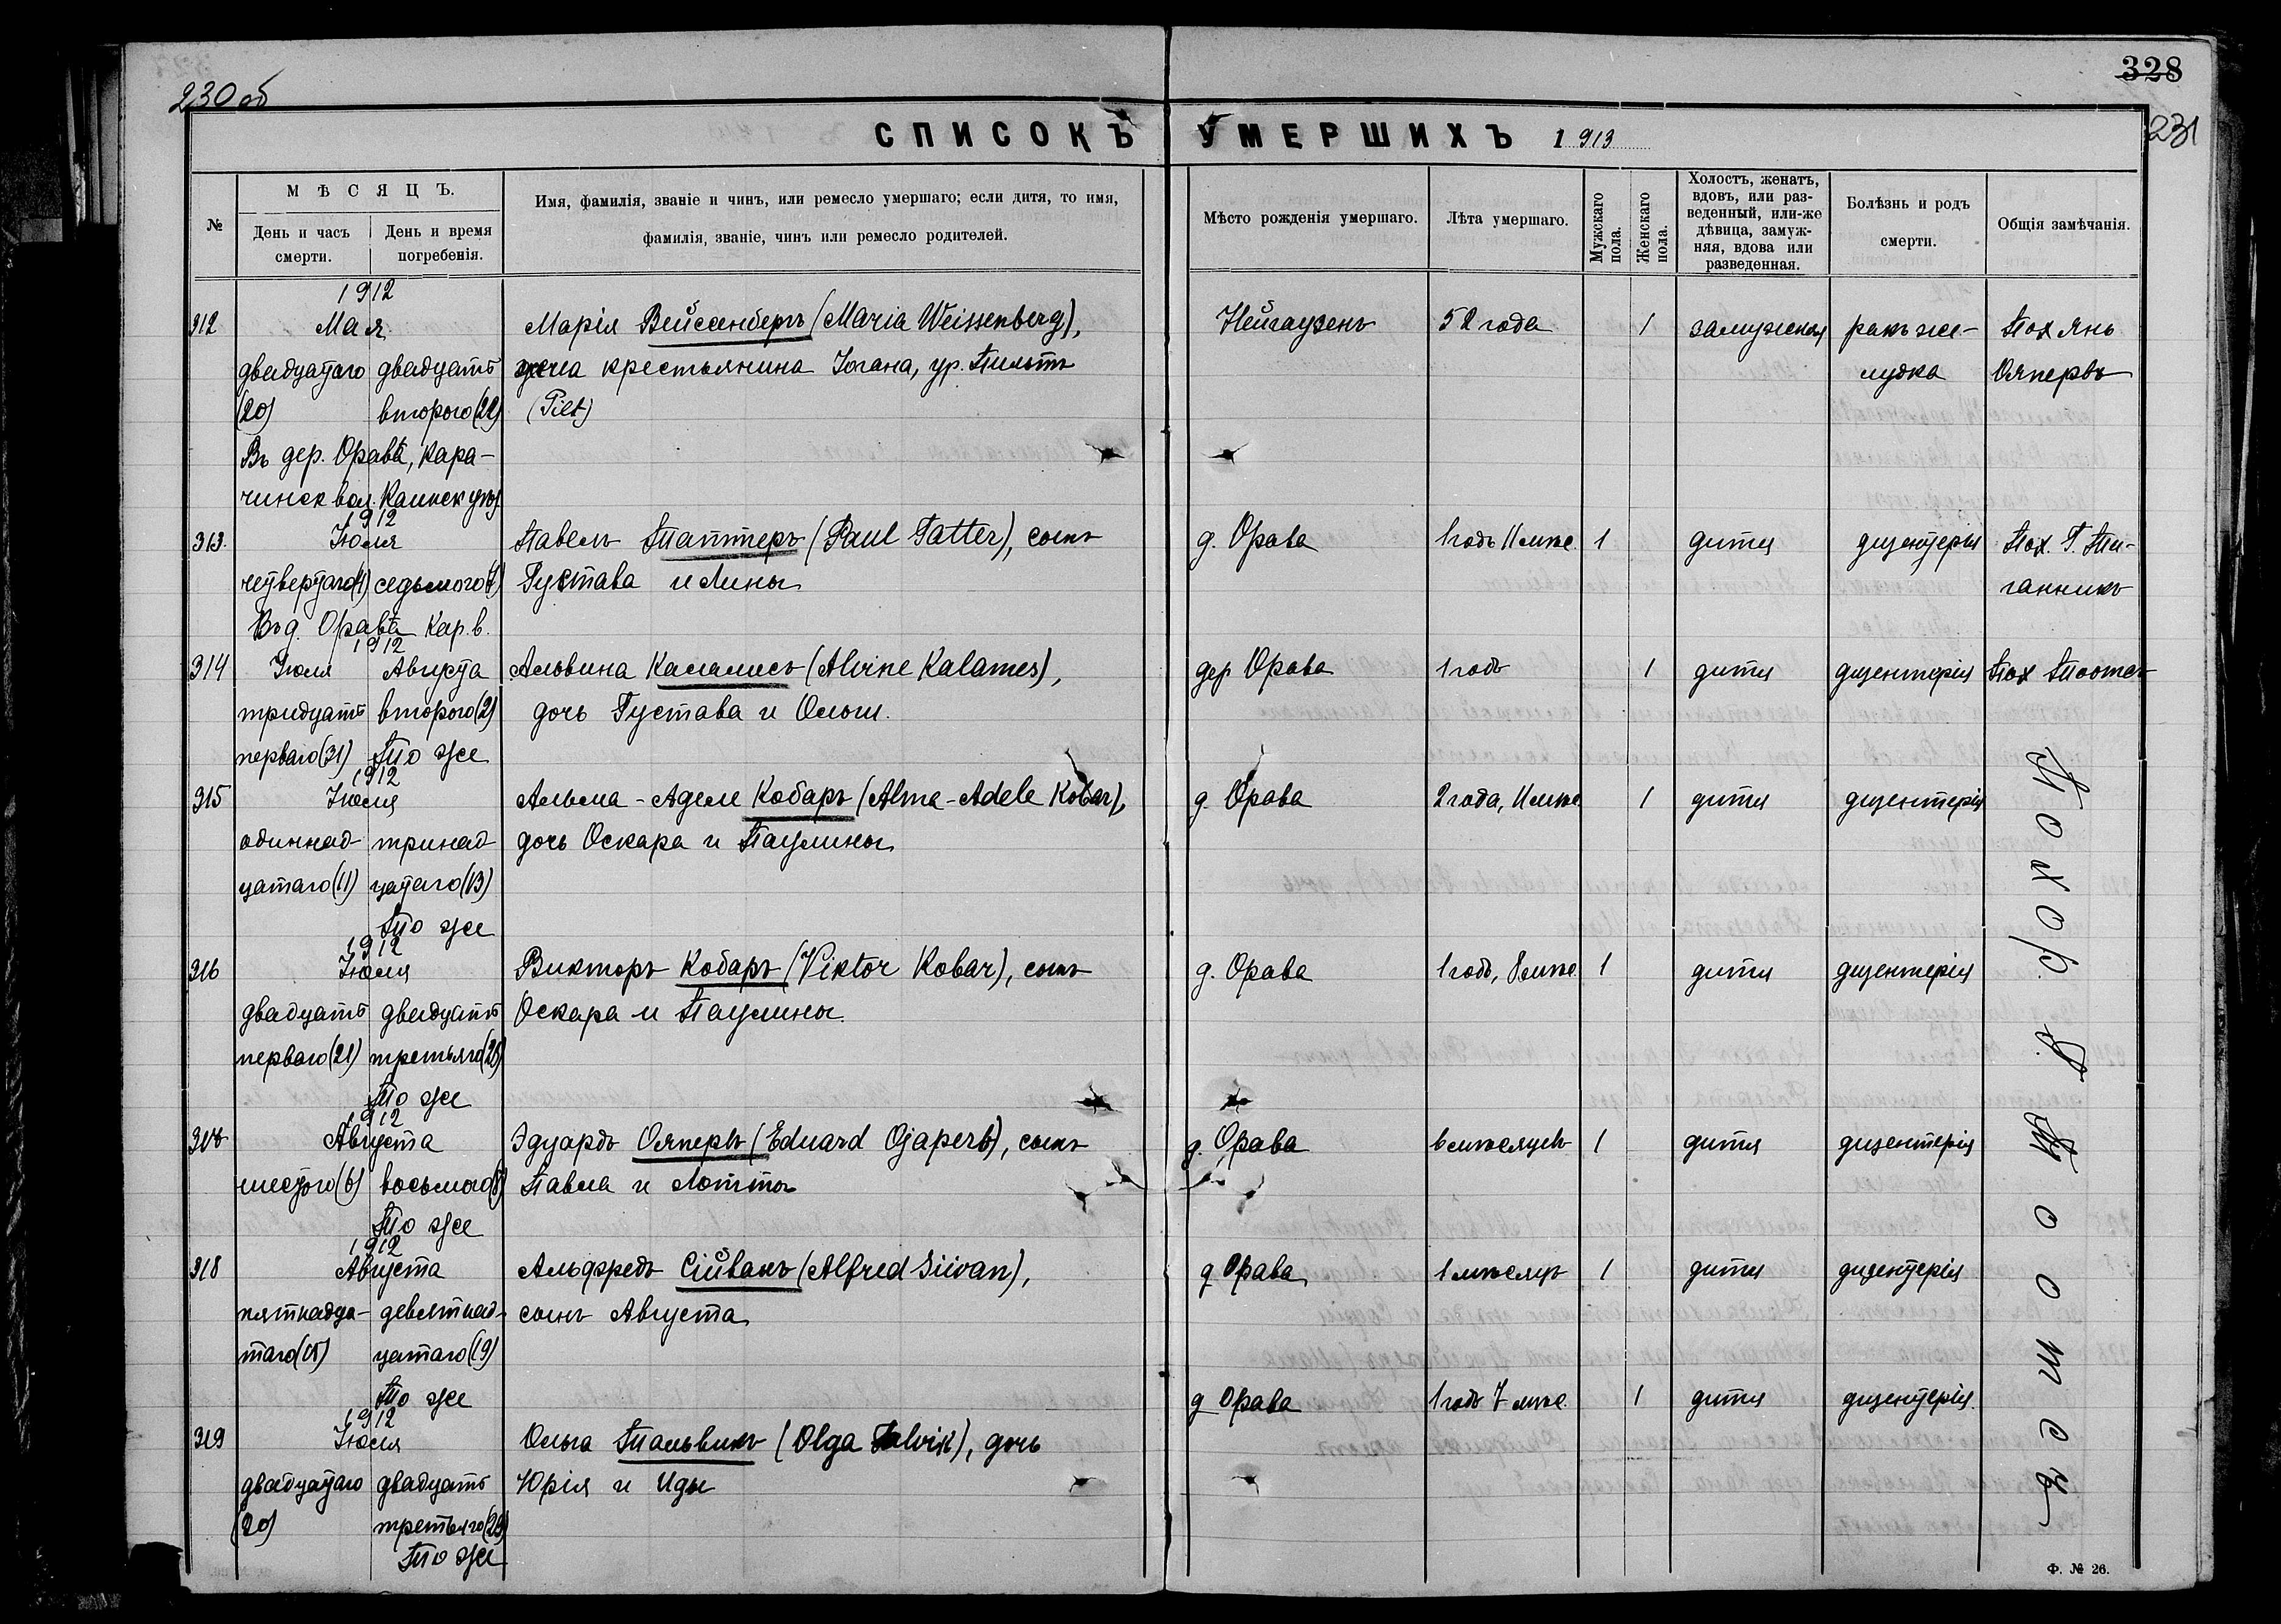 328
230 об
231
СПИСОКЪ УМЕРШИХЪ 1913
№
МѢСЯЦЪ.
День и часъ смерти.
День и время погребенія.
Имя, фамилія, званіе и чинъ, или ремесло умершаго; если дитя, то имя,
фамилія, званіе, чинъ или ремесло родителей.
Мѣсто рожденія умершаго.
Лѣта умершаго.
Мужскаго пола.
Женскаго пола.
Холостъ, женатъ,
вдовъ, или раз-
веденный, или-же
дѣвица, замуж-
няя, вдова или
разведенная.
Болѣзнь и родъ
смерти.
Общія замѣчанія.
1912
312 Мая Марія Вейсенбергъ (Maria Weissenberg), Нейгаузенъ 52 года 1 замужняя ракъ же- Пох Янъ
двадцатаго двадцать жена крестьянина Іогана, ур. Пильтъ лудка Ояперв
(20) второго (22) (Pilt)
Въ дер. Орава, Кара-
чинск вол. Каинск уѣз
1912
313. Іюля Павелъ Таттеръ (Paul Tatter), сынъ д. Орава 1 годъ 11 мѣс. 1 дитя дизентерія Пох. Г.
четвертаго (4) седьмого (7) Густава и Лины ганникъ
Въ д. Орава Кар. в.
1912
314 Іюля Августа Альвина Каламесъ (Alvine Kalames), дер Орава 1 годъ 1 дитя дизентерія Пох Тоотсъ
тридцать второго (2) дочь Густава и Ольги.
перваго (31) То же
1912
315 Іюля Альма-Аделе Кобаръ (Alma-Adele Kobar), д. Орава 2 года, 11 мѣс 1 дитя дизентерія
одиннад- тринад- дочь Оскара и Паулины
цатаго (11) цатаго (13)
То же
1912
316 Іюля Викторъ Кобаръ (Viktor Kobar), сынъ д. Орава 1 годъ, 8 мѣс. 1 дитя дизентерія
двадцать двадцать Оскара и Паулины.
перваго (21) третьяго (23)
То же
1912
Августа Эдуардъ Ояпервъ (Eduard Ojaperv), сынъ д. Орава 6 мѣсяцевъ 1 дитя дизентерія
шестого (6) восьмого (8) Павла и Лотты
То же
1912
318 Августа Альфредъ Сійванъ (Alfred Siivan), д Орава 1 мѣсяцъ 1 дитя дизентерія
пятнадца- девятнад- сынъ Августа
таго (15) цатаго (19)
То же
д Орава 1 годъ 7 мѣс. 1 дитя дизентерія.
1912
319 Іюля Ольга Тальвикъ (Olga Talvik), дочь
двадцатаго двадцать Юрія и Иды
(20) третьяго (23)
То же
Похор. Д. Тоотсъ
Ф. № 26.